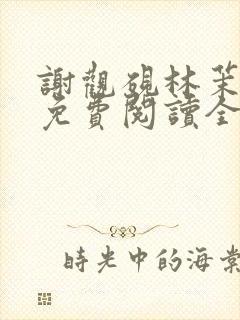 謝觀硯林茉
免費閱讀全
時光中的海棠